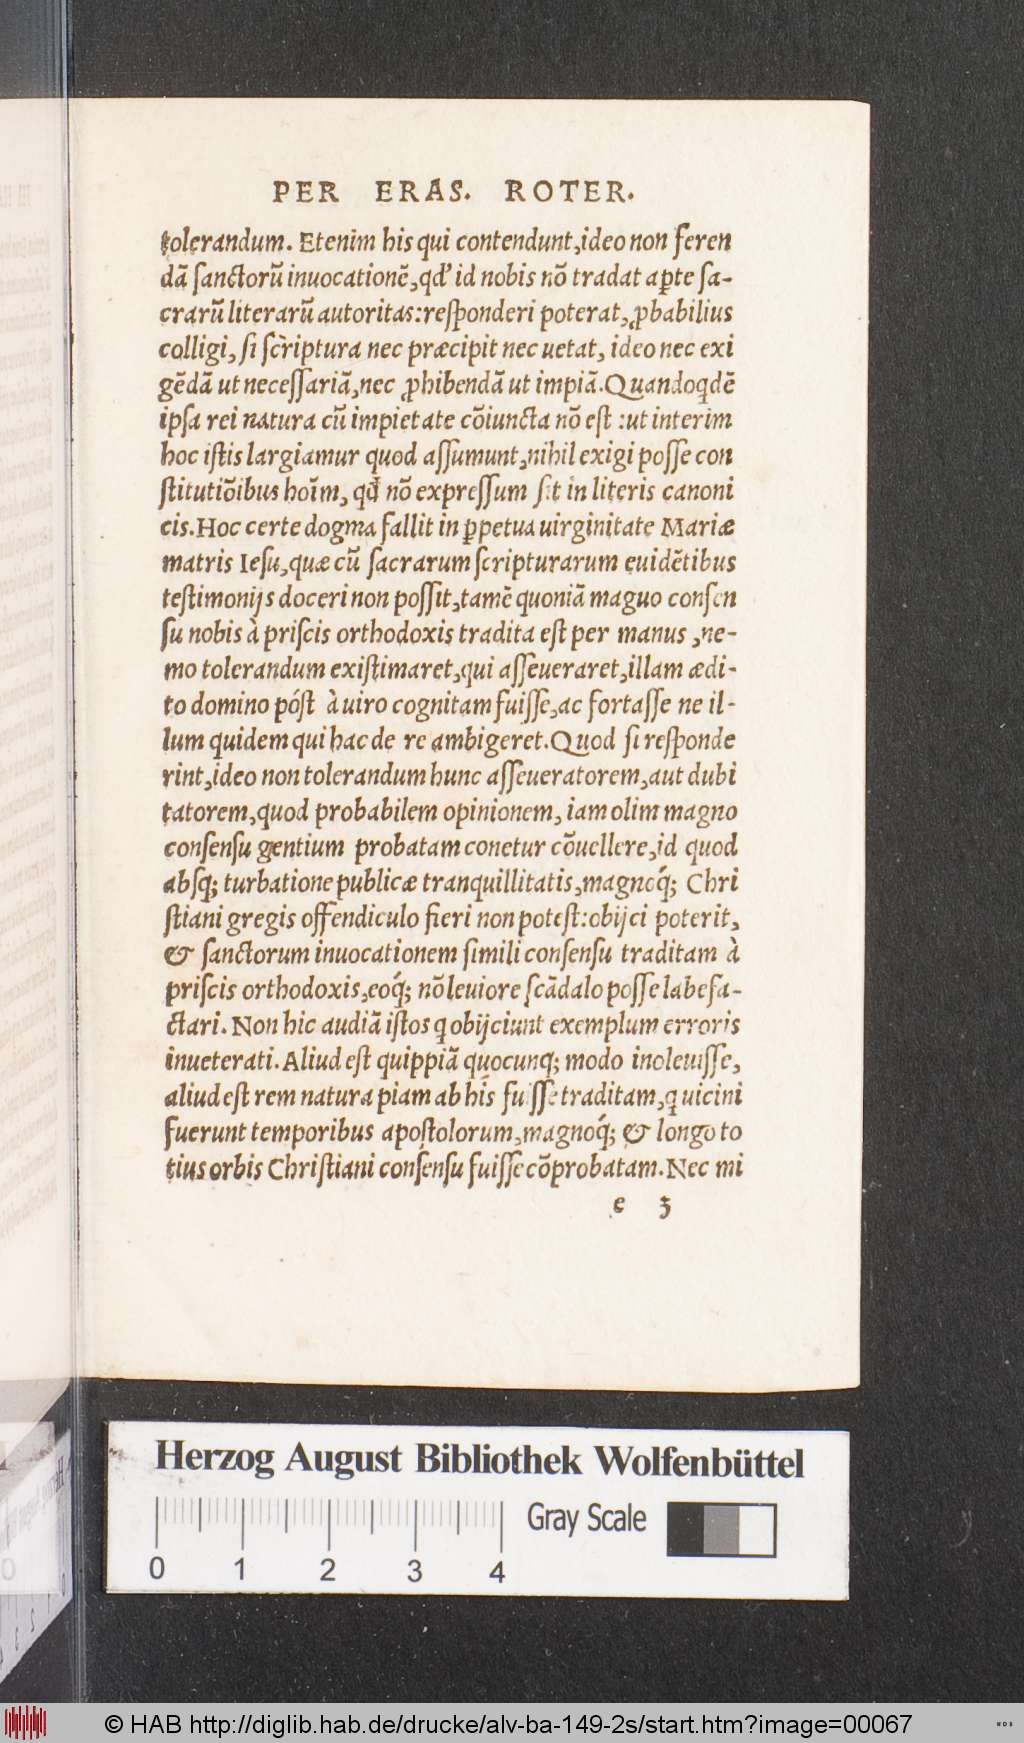 PER ERAS. ROTER.
tolerandum. Etenim his qui contendunt, ideo non feren
dā ſanctorū inuocationē, qd' id nobis nō tradat aꝑte ſa-
crarū literarū autoritas: reſponderi poterat, ꝓbabilius
colligi, ſi ſcriptura nec præcipit nec uetat, ideo nec exi
gēdā ut neceſſariā, nec ꝓhibendā ut impiā. Quandoqdē
ipſa rei natura cū impietate cōiuncta nō eſt : ut interim
hoc iſtis largiamur quod aſſumunt, nihil exigi poſſe con
ſtitutiōibus hoīm, qd nō expreſſum ſit in literis canoni
cis. Hoc certe dogma fallit in ꝑpetua uirginitate Mariæ
matris Ieſu, quæ cū ſacrarum ſcripturarum euidētibus
teſtimonijs doceri non poſſit, tamē quoniā maguo conſen
ſu nobis à priſcis orthodoxis tradita eſt per manus , ne-
mo tolerandum exiſtimaret, qui aſſeueraret, illam ædi-
to domino póſt à uiro cognitam fuiſſe, ac fortaſſe ne il-
lum quidem qui hac de re ambigeret. Quod ſi reſponde
rint, ideo non tolerandum hunc aſſeueratorem, aut dubi
tatorem, quod probabilem opinionem, iam olim magno
conſenſu gentium probatam conetur cōuellere, id quod
abſq; turbatione publicæ tranquillitatis, magnoq́; Chri
ſtiani gregis offendiculo fieri non poteſt: obijci poterit,
& ſanctorum inuocationem ſimili conſenſu traditam à
priſcis orthodoxis, eoq́; nō leuiore ſcādalo poſſe labefa-
ctari. Non hic audiā iſtos q obijciunt exemplum erroris
inueterati. Aliud eſt quippiā quocunq; modo inoleuiſſe,
aliud eſt rem natura piam ab his fuiſſe traditam, q uicini
fuerunt temporibus apoſtolorum, magnoq́; & longo to
tius orbis Chriſtiani conſenſu fuiſſe cōprobatam. Nec mi
e 3
Herzog August Bibliothek Wolfenbüttel
Gray Scale
0 1 2 3 4
© HAB http://diglib.hab.de/drucke/alv-ba-149-2s/start.htm?image=00067